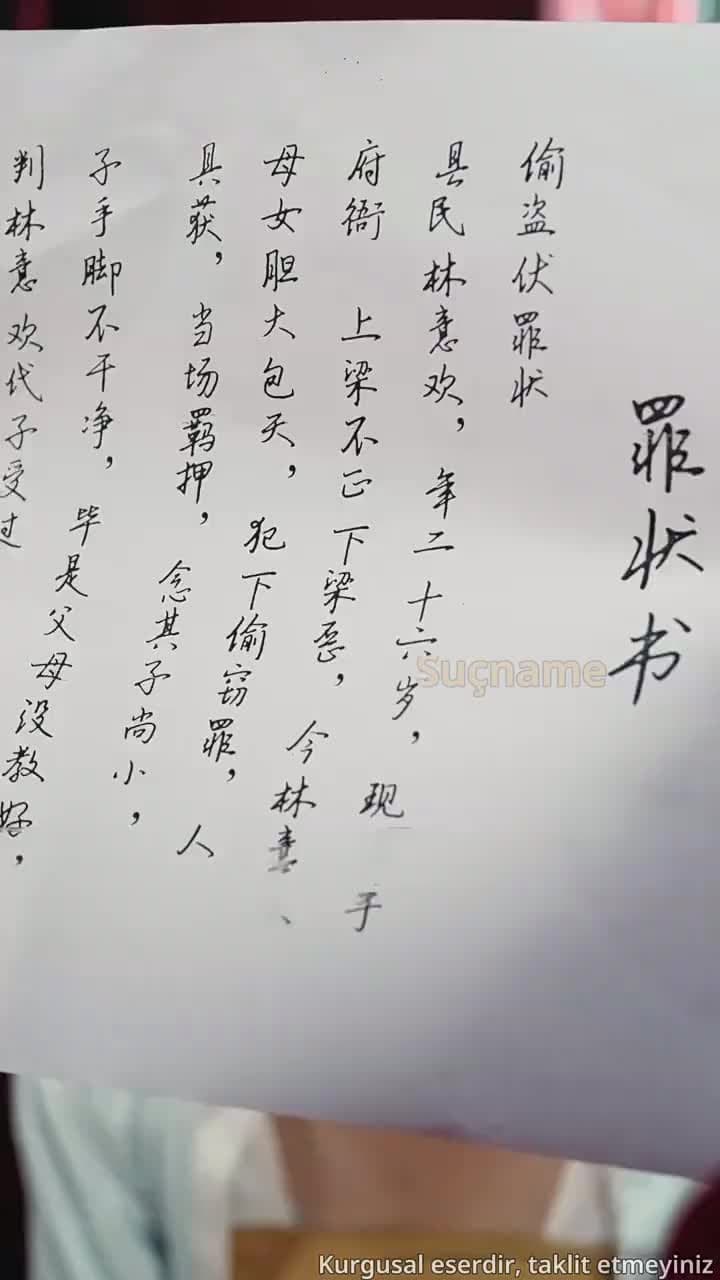 罪状书
偷盗伏罪状
县民林意欢，年二十六岁，现于
府衙 上梁不正下梁恶，今林意、
母女胆大包天，犯下偷窃罪，人
具获，当场羁押，念其子尚小，
子手脚不干净，毕是父母没教好，
判林意欢代子受过
Suçname
Kurgusal eserdir, taklit etmeyiniz